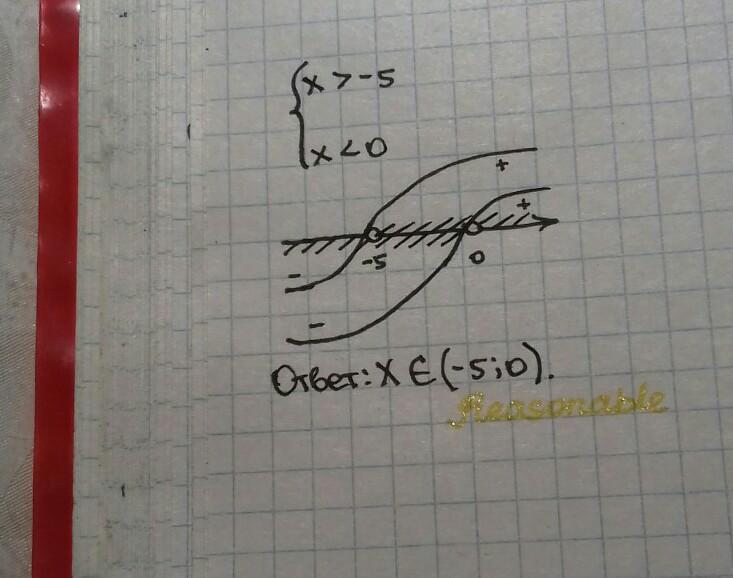 x > -5
x < 0
+
+
-5
0
-
-
Ответ: X ∈ (-5; 0).
Reasonable